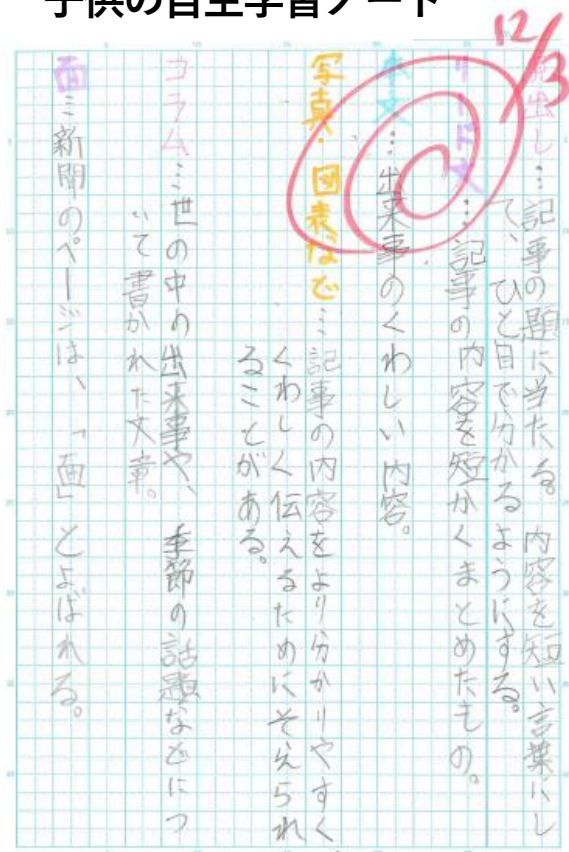 子供の自主学習ノート
12/3
見出し…記事の題に当たる。内容を短い言葉にし
て、ひと目で分かるようにする。
リード文…記事の内容を短かくまとめたもの。
本文…出来事のくわしい内容。
写真・図表など…記事の内容をより分かりやすく
くわしく伝えるためにそえられ
ることがある。
コラム…世の中の出来事や、季節の話題などにつ
いて書かれた文章。
面…新聞のページは、「面」とよばれる。